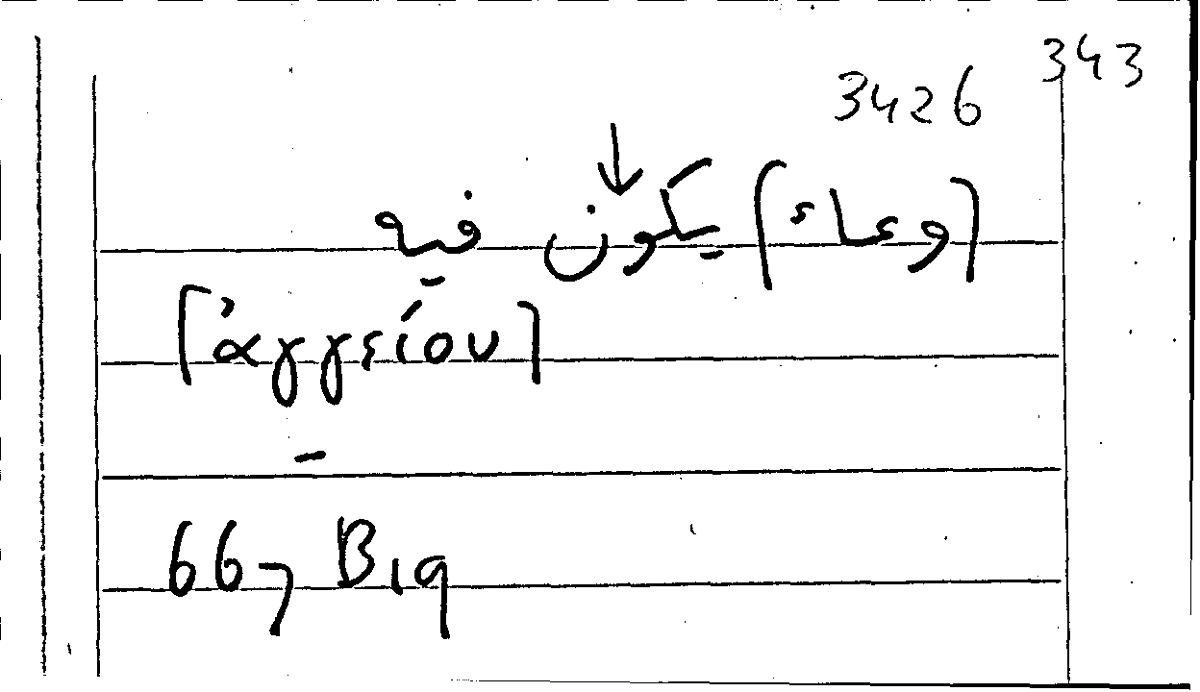 343
3426
[وعاء] يكون فيه
[ἀγγείου]
–
667 B19